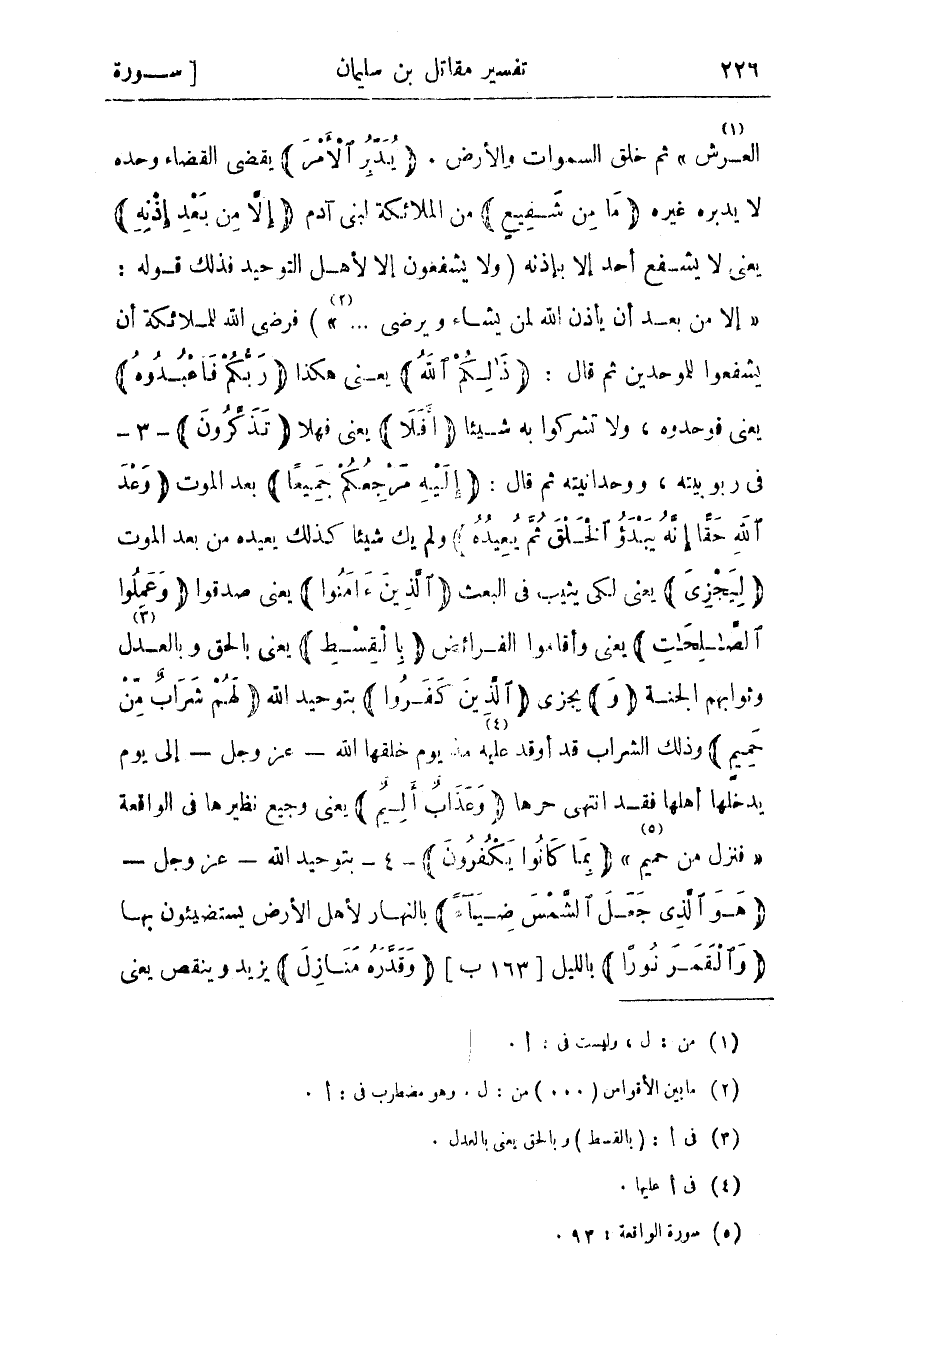 ٢٢٦ تفسير مقاتل بن سليمان [ سـورة
العـرش » ثم خلق السموات والأرض . ﴿ يُدَبِّرُ ٱلْأَمْرَ ﴾ يقضى القضاء وحده (١)
لا يدبره غيره ﴿ مَا مِن شَـفِيعٍ ﴾ من الملائكة لبنى آدم ﴿ إِلَّا مِن بَعْدِ إِذْنِهِ ﴾
يعنى لا يشـفع أحد إلا بإذنه ( ولا يشفعون إلا لأهـل التوحيد فذلك قـوله :
« إلا من بعـد أن يأذن الله لمن يشـاء ويرضى ... » (٢) ) فرضى الله للمـلائكة أن
يشفعوا للموحدين ثم قال : ﴿ ذَٰلِـكُمُ ٱللَّهُ ﴾ يعـنى هكذا ﴿ رَبُّكُمْ فَٱعْبُـدُوهُ ﴾
يعنى فوحدوه ، ولا تشركوا به شـيئا ﴿ أَفَلَا ﴾ يعنى فهلا ﴿ تَذَكَّرُونَ ﴾ - ٣ -
فى ربوبيته ، ووحدانيته ثم قال : ﴿ إِلَيْهِ مَرْجِعُكُمْ جَمِيعًا ﴾ بعد الموت ﴿ وَعْدَ
ٱللَّهِ حَقًّا إِنَّهُ يَبْدَؤُ ٱلْخَـلْقَ ثُمَّ يُعِيدُهُ ﴾ ولم يك شيئا كذلك يعيده من بعد الموت
﴿ لِيَجْزِىَ ﴾ يعنى لكى يثيب فى البعث ﴿ ٱلَّذِينَ ءَامَنُوا ﴾ يعنى صدقوا ﴿ وَعَمِلُوا
ٱلصَّـٰلِحَـٰتِ ﴾ يعنى وأقاموا الفـرائض ﴿ بِٱلْقِسْـطِ ﴾ يعنى بالحق وبالعـدل (٣)
وثوابهم الجنـة ﴿ وَ ﴾ يجزى ﴿ ٱلَّذِينَ كَفَـرُوا ﴾ بتوحيد الله ﴿ لَهُمْ شَرَابٌ مِّنْ
حَمِيمٍ ﴾ وذلك الشراب قد أوقد عليه (٤) منذ يوم خلقها الله - عز وجل - إلى يوم
يدخلها أهلها فقـد انتهى حرها ﴿ وَعَذَابٌ أَلِـيمٌ ﴾ يعنى وجيع نظيرها فى الواقعة
« فنزل من حميم » (٥) ﴿ بِمَا كَانُوا يَكْفُرُونَ ﴾ - ٤ - بتوحيد الله - عز وجل -
﴿ هُـوَ ٱلَّذِى جَعَـلَ ٱلشَّمْسَ ضِـيَآءً ﴾ بالنهـار لأهل الأرض يستضيئون بهـا
﴿ وَٱلْقَمَـرَ نُورًا ﴾ بالليل [ ١٦٣ ب ] ﴿ وَقَدَّرَهُ مَنَازِلَ ﴾ يزيد وينقص يعنى
(١) من : ل ، وليست فى : أ .
(٢) ما بين الأقواس ( ٠٠٠ ) من : ل . وهو مضطرب فى : أ .
(٣) فى أ : ( بالقسط ) وبالحق يعنى بالعدل .
(٤) فى أ عليها .
(٥) سورة الواقعة : ٩٣ .